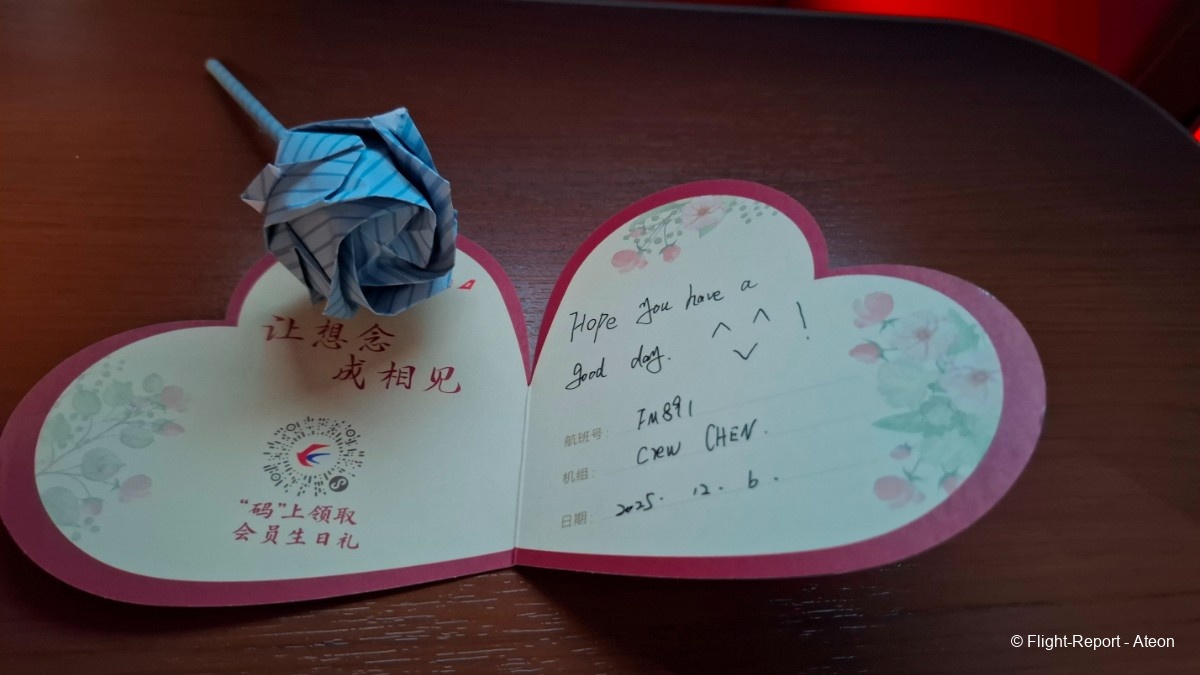 让想念
成相见
“码”上领取
会员生日礼
Hope you have a
good day. ^ ^ !
航班号: FM891
机组: crew CHEN.
日期: 2025. 12. 6.
© Flight-Report - Ateon